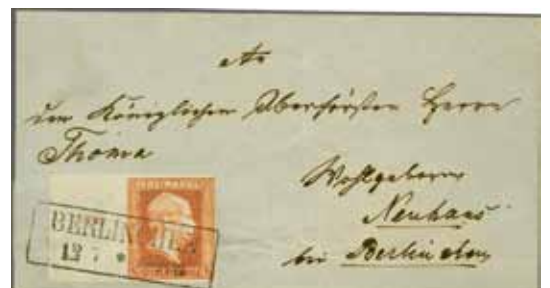 An
den Königlichen Oberförster Herrn
Thoma
Wohlgeboren
Neuhaus
bei Berlinchen
BERLINCHEN
12 7 *